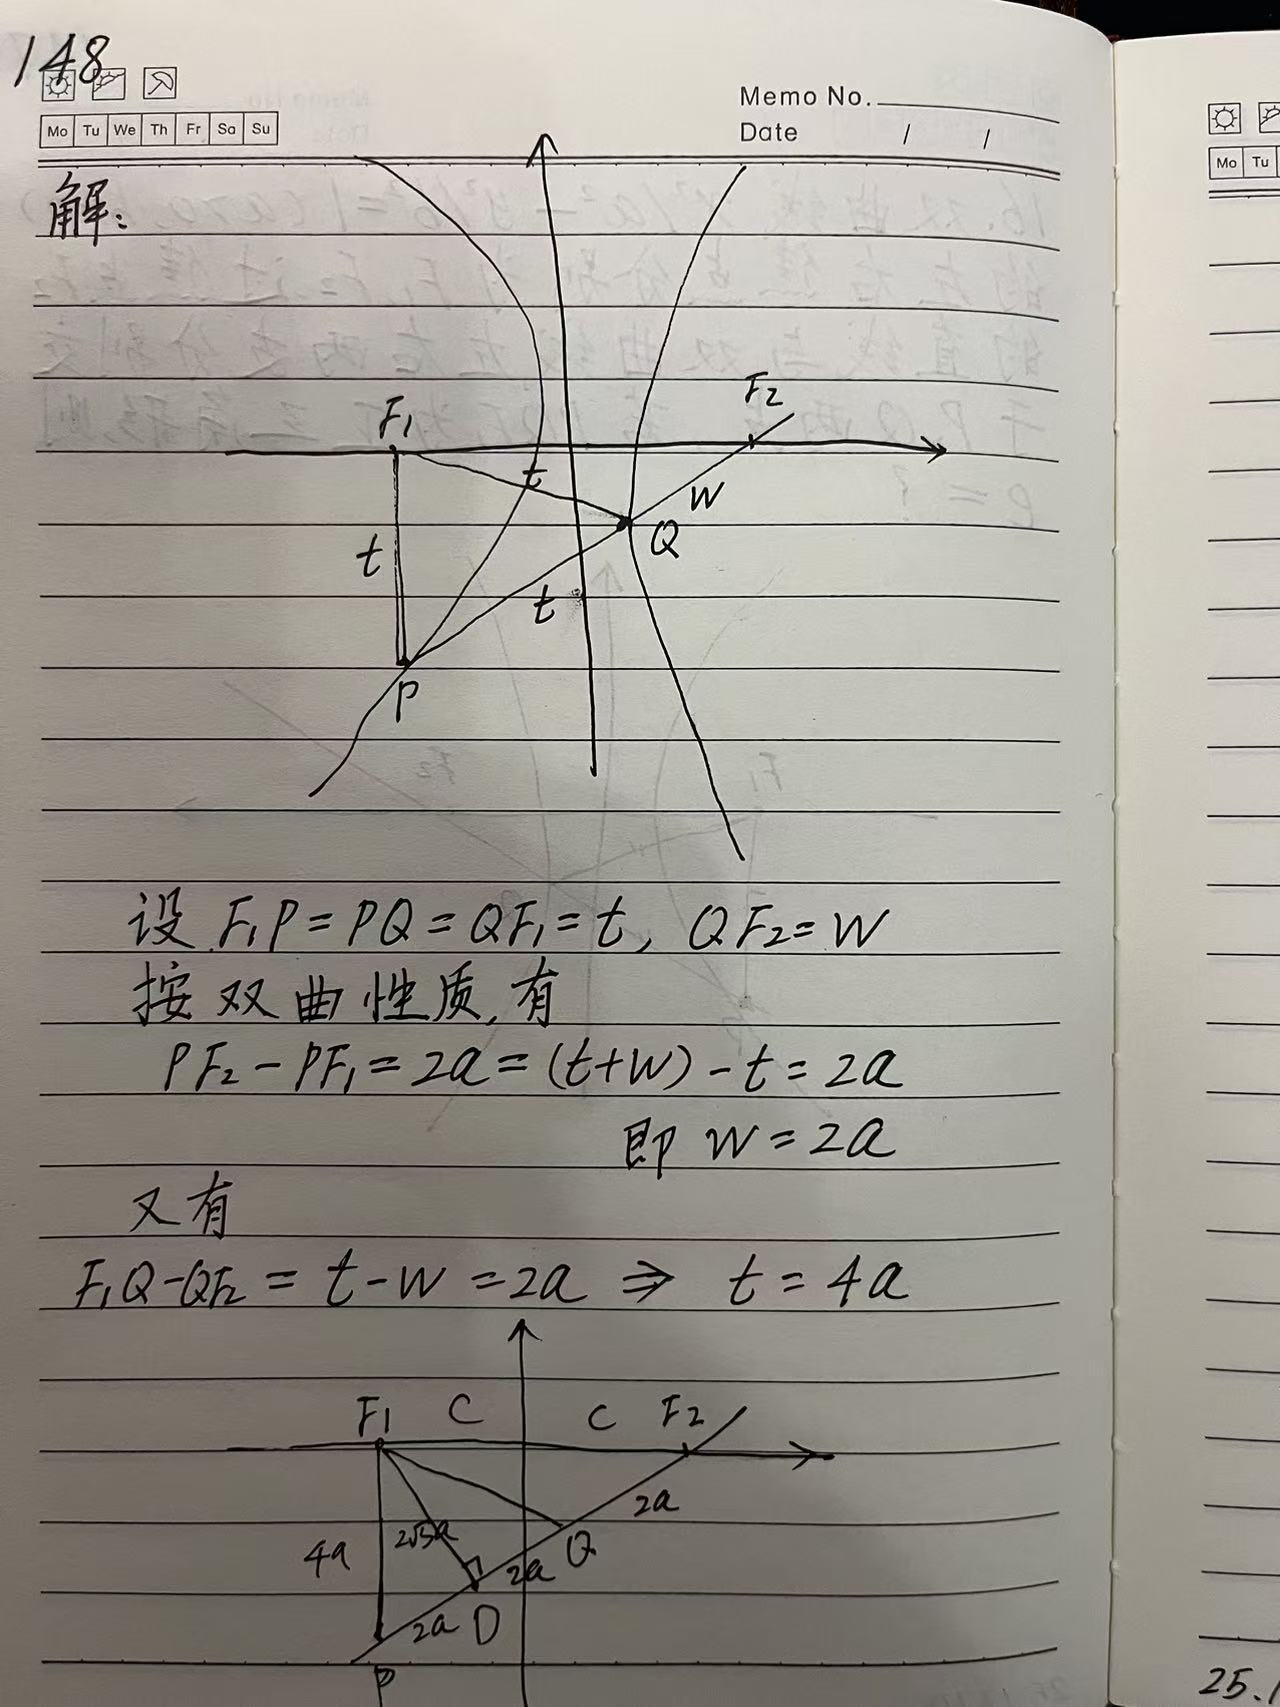 148
Memo No.
Mo Tu We Th Fr Sa Su
Date / /
Mo Tu
解:
F₁
F₂
t
W
Q
t
t
P
设 F₁P = PQ = QF₁ = t, QF₂ = W
按双曲性质,有
PF₂ - PF₁ = 2a = (t+W) - t = 2a
即 W = 2a
又有
F₁Q - QF₂ = t - W = 2a ⇒ t = 4a
F₁ C C F₂
2a
4a 2√3a Q
2a
2a D
P
25.